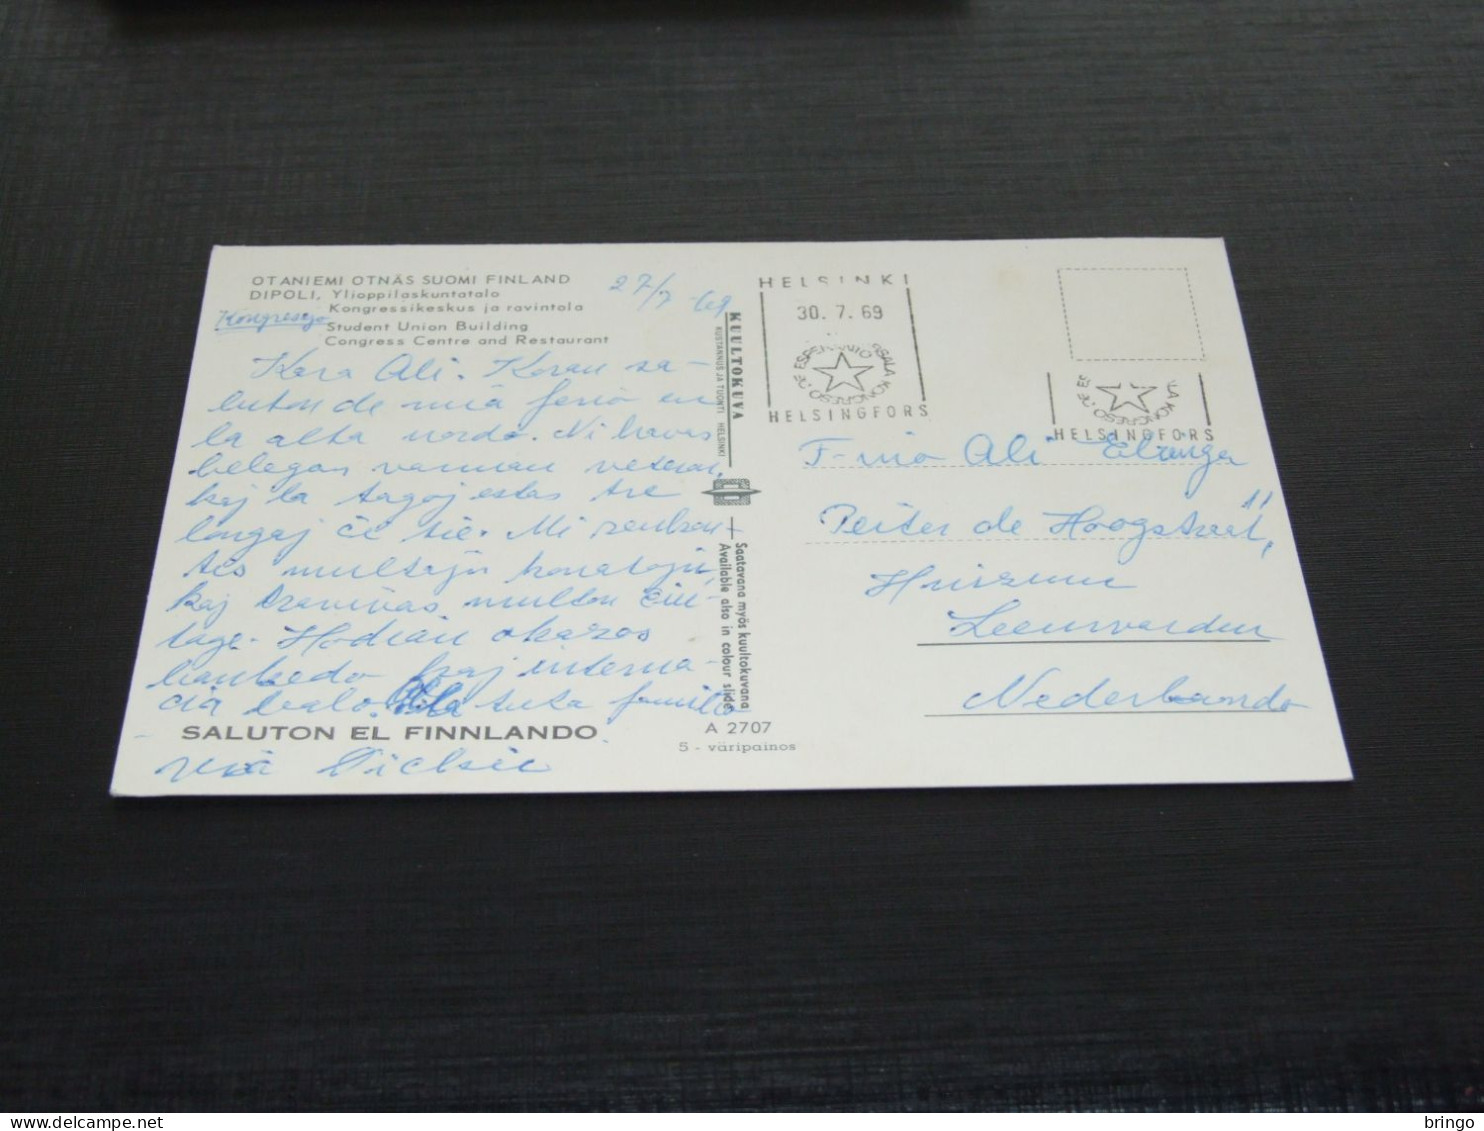 OTANIEMI OTNÄS SUOMI FINLAND
DIPOLI, Ylioppilaskuntatalo
Kongressikeskus ja ravintola
Student Union Building
Congress Centre and Restaurant
Kongresejo
27/7 -69
Kara Ali. Koran sa-
luton de mia ferio en
la alta nordo. Ni havas
belegan varman veteron,
kaj la tagoj estas tre
longaj ĉi tie. Mi renkon-
tis multajn konatojn,
kaj travivas multon ĉiu-
tage. Hodiaŭ okazos
bankedo kaj interna-
cia balo. Al la tuta familio
SALUTON EL FINNLANDO
via
KUULTOKUVA
KUSTANNUS JA TUONTI HELSINKI
Saatavana myös kuultokuvana
Available also in colour slide
A 2707
5 - väripainos
HELSINKI
30. 7. 69
HELSINGFORS
HELSINGFORS
F-ino Ali Elzinga
Peiter de Hoogstraat 11,
Huizum
Leeuwarden
Nederlando
bringo